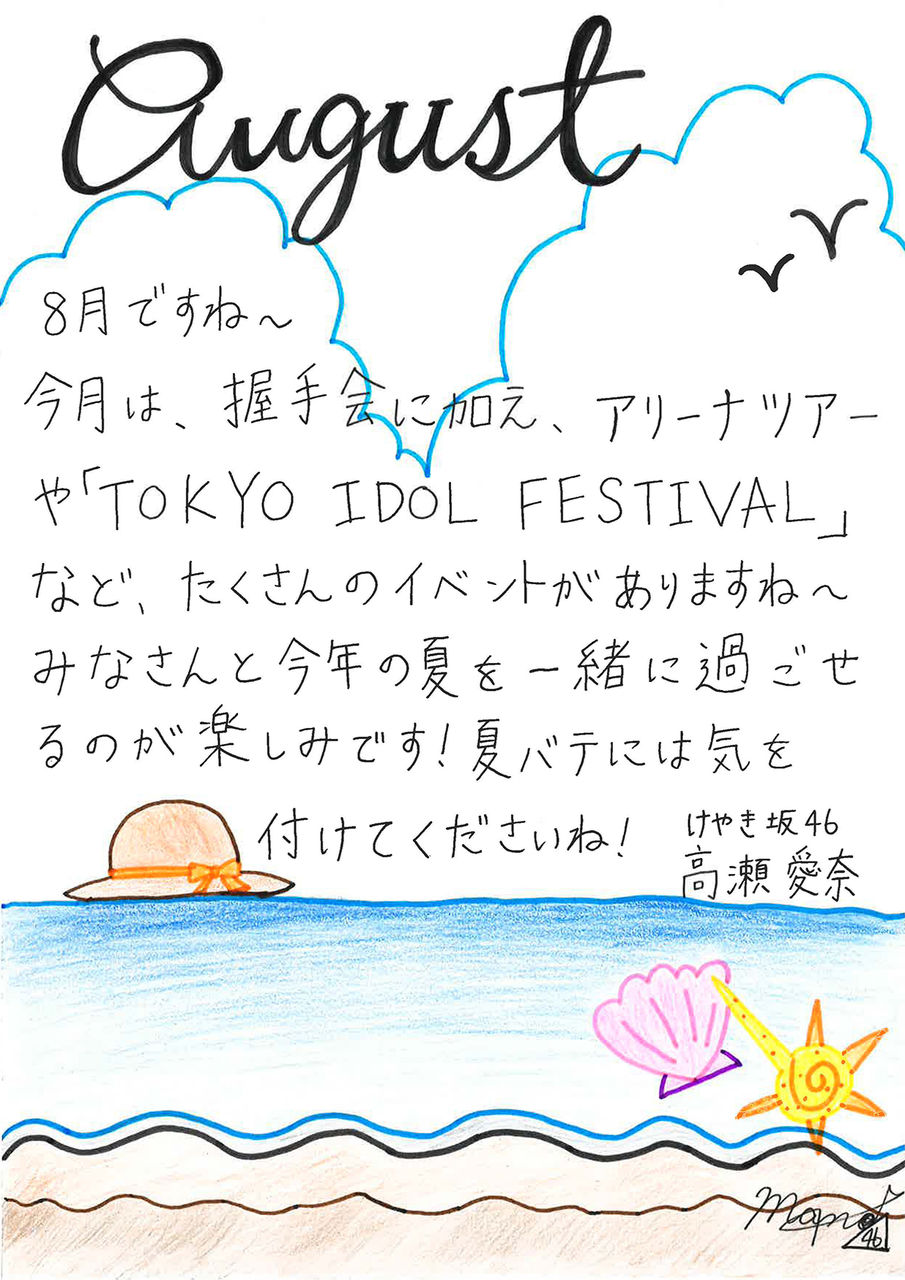 August
8月ですね～
今月は、握手会に加え、アリーナツアー
や「TOKYO IDOL FESTIVAL」
など、たくさんのイベントがありますね～
みなさんと今年の夏を一緒に過ごせ
るのが楽しみです!夏バテには気を
付けてくださいね!
けやき坂46
高瀬愛奈
46